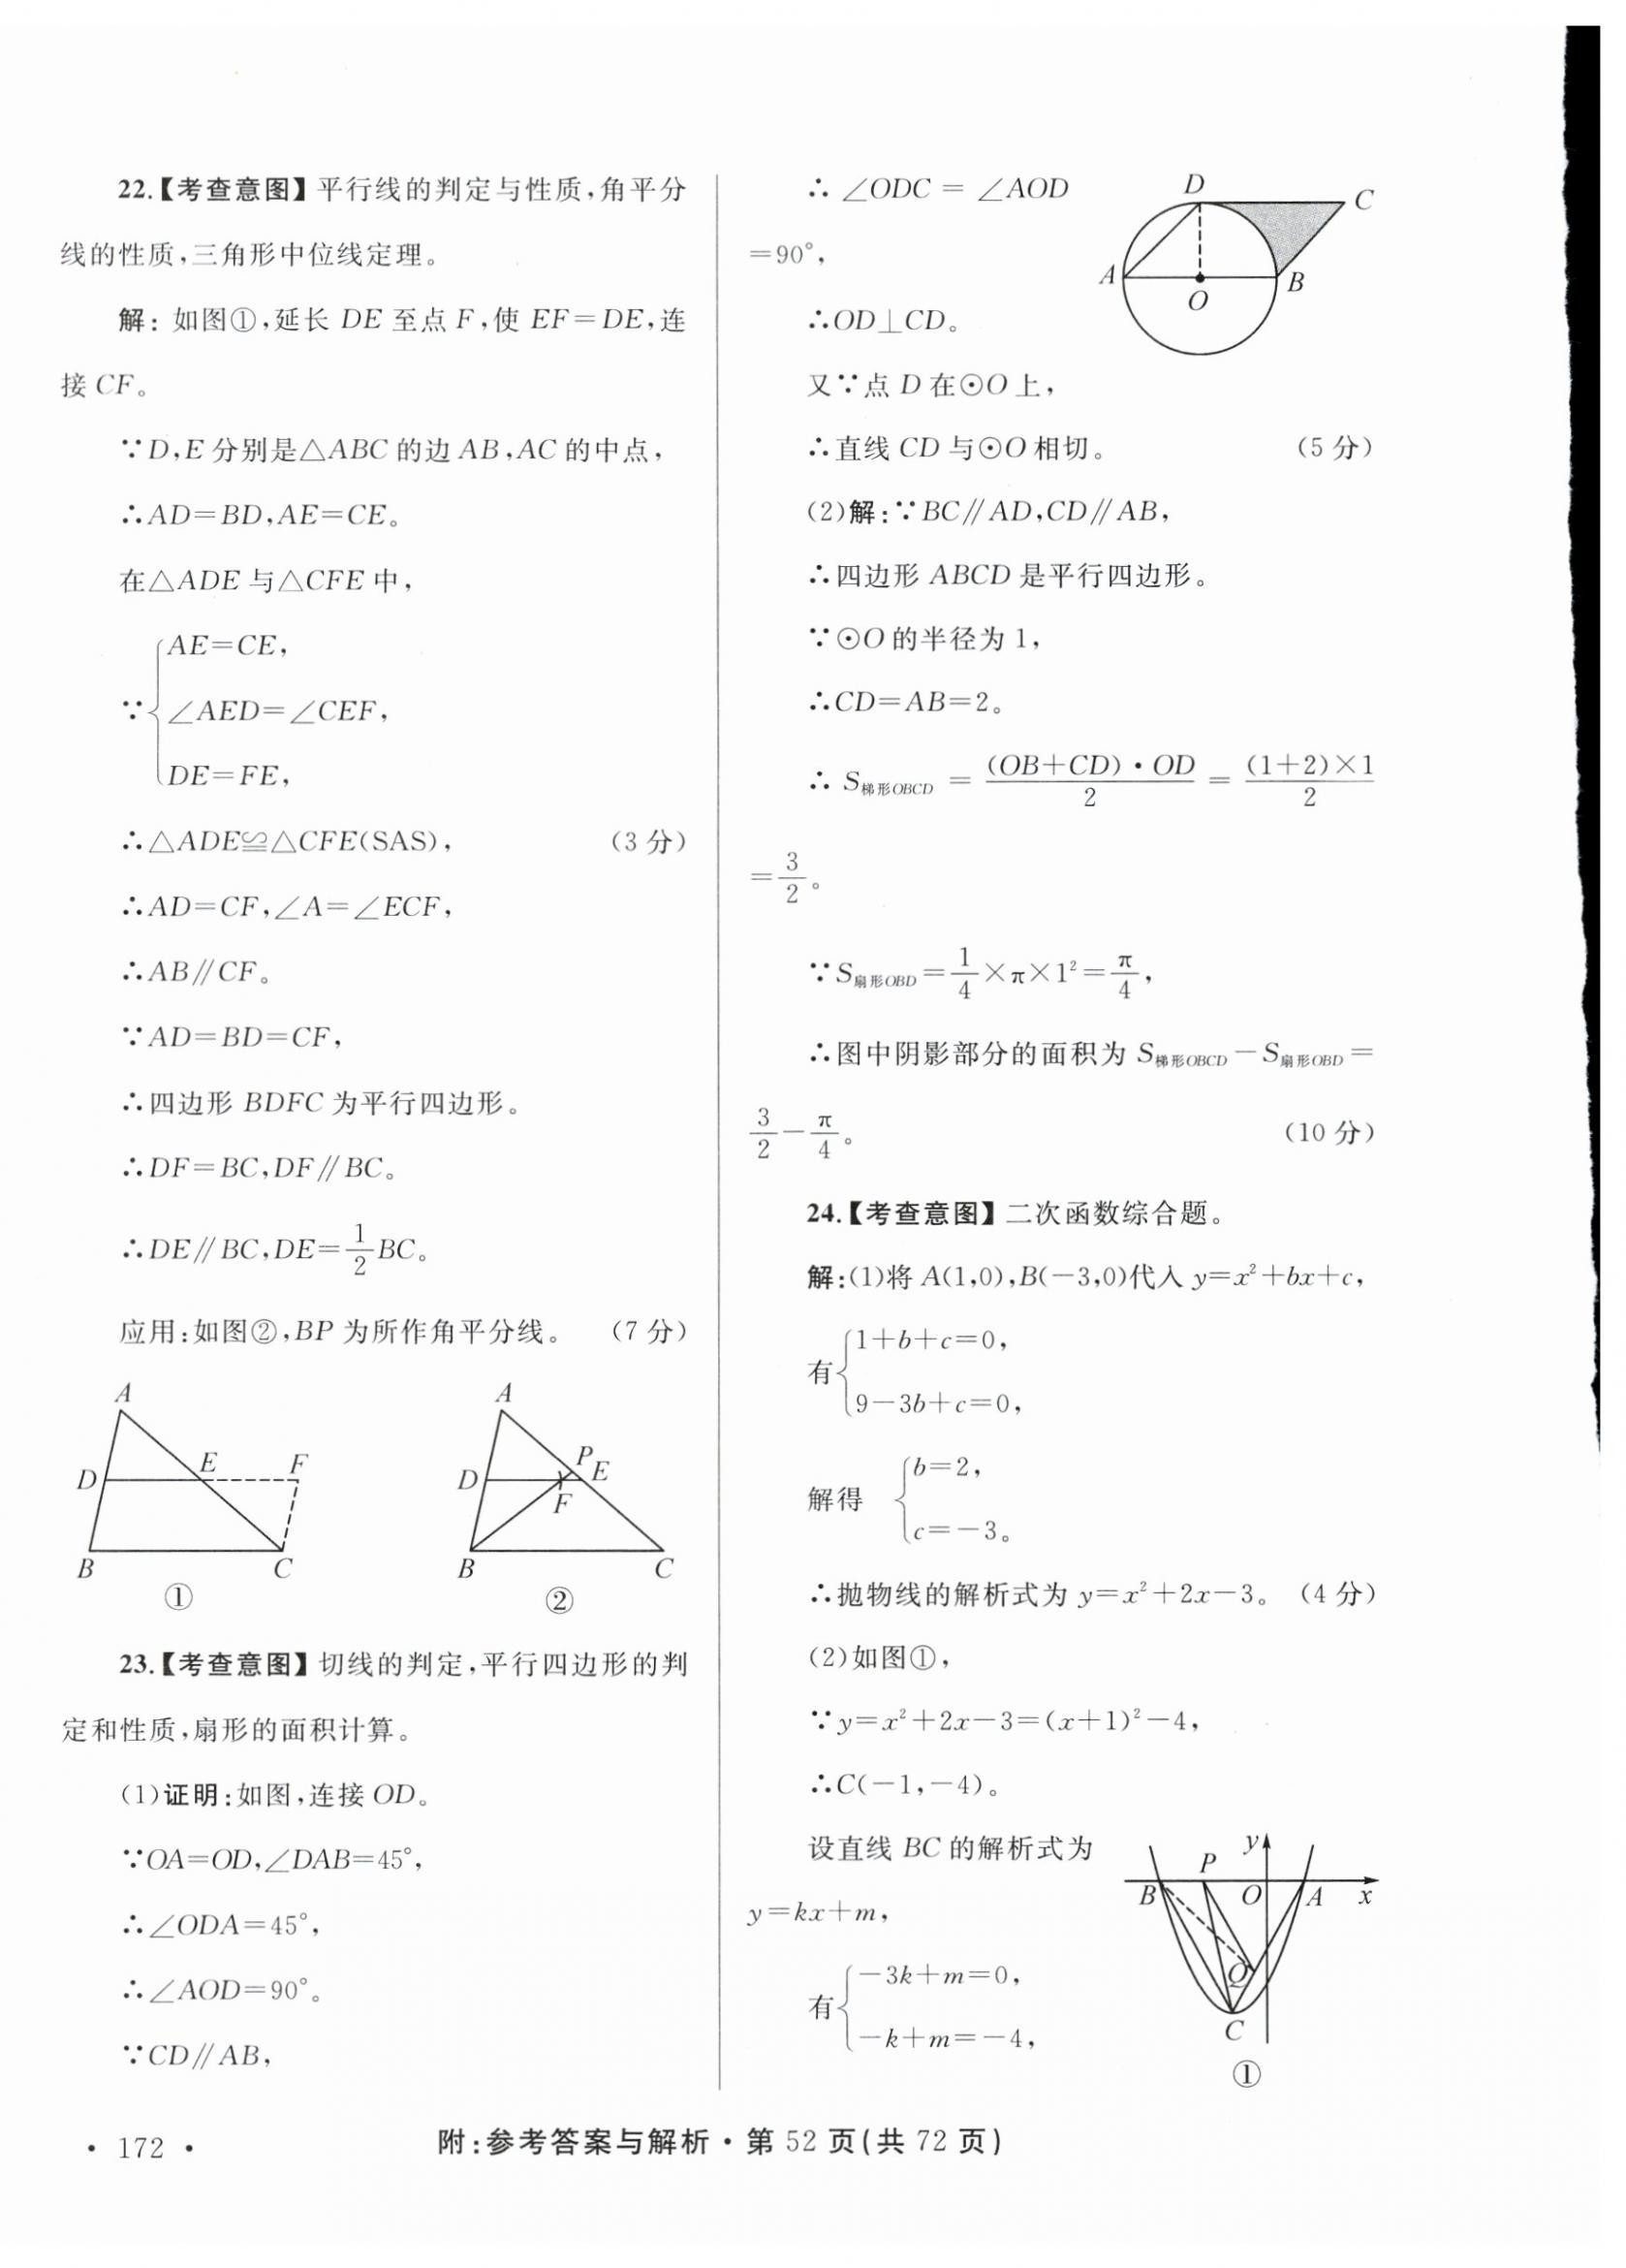 22.【考查意图】平行线的判定与性质,角平分
线的性质,三角形中位线定理。
解: 如图①,延长 DE 至点 F,使 EF=DE,连
接 CF。
∵D,E 分别是△ABC 的边 AB,AC 的中点,
∴AD=BD,AE=CE。
在△ADE 与△CFE 中,
AE=CE,
∵{∠AED=∠CEF,
DE=FE,
∴△ADE≌△CFE(SAS), (3 分)
∴AD=CF,∠A=∠ECF,
∴AB∥CF。
∵AD=BD=CF,
∴四边形 BDFC 为平行四边形。
∴DF=BC,DF∥BC。
∴DE∥BC,DE=1/2 BC。
应用:如图②,BP 为所作角平分线。 (7 分)
A
D E F
B C
①
A
D P E
F
B C
②
23.【考查意图】切线的判定,平行四边形的判
定和性质,扇形的面积计算。
(1)证明:如图,连接 OD。
∵OA=OD,∠DAB=45°,
∴∠ODA=45°,
∴∠AOD=90°。
∵CD∥AB,
∴ ∠ODC = ∠AOD
=90°,
∴OD⊥CD。
又∵点 D 在⊙O 上,
∴直线 CD 与⊙O 相切。 (5 分)
D C
A O B
(2)解:∵BC∥AD,CD∥AB,
∴四边形 ABCD 是平行四边形。
∵⊙O 的半径为 1,
∴CD=AB=2。
∴ S梯形OBCD = (OB+CD)·OD/2 = (1+2)×1/2
=3/2。
∵S扇形OBD=1/4×π×1²=π/4,
∴图中阴影部分的面积为 S梯形OBCD-S扇形OBD=
3/2-π/4。 (10 分)
24.【考查意图】二次函数综合题。
解:(1)将 A(1,0),B(-3,0)代入 y=x²+bx+c,
有{1+b+c=0,
9-3b+c=0,
解得{b=2,
c=-3。
∴抛物线的解析式为 y=x²+2x-3。 (4 分)
(2)如图①,
∵y=x²+2x-3=(x+1)²-4,
∴C(-1,-4)。
设直线 BC 的解析式为
y=kx+m,
有{-3k+m=0,
-k+m=-4,
y
P
B O A x
Q
C
①
· 172 ·
附:参考答案与解析·第 52 页(共 72 页)